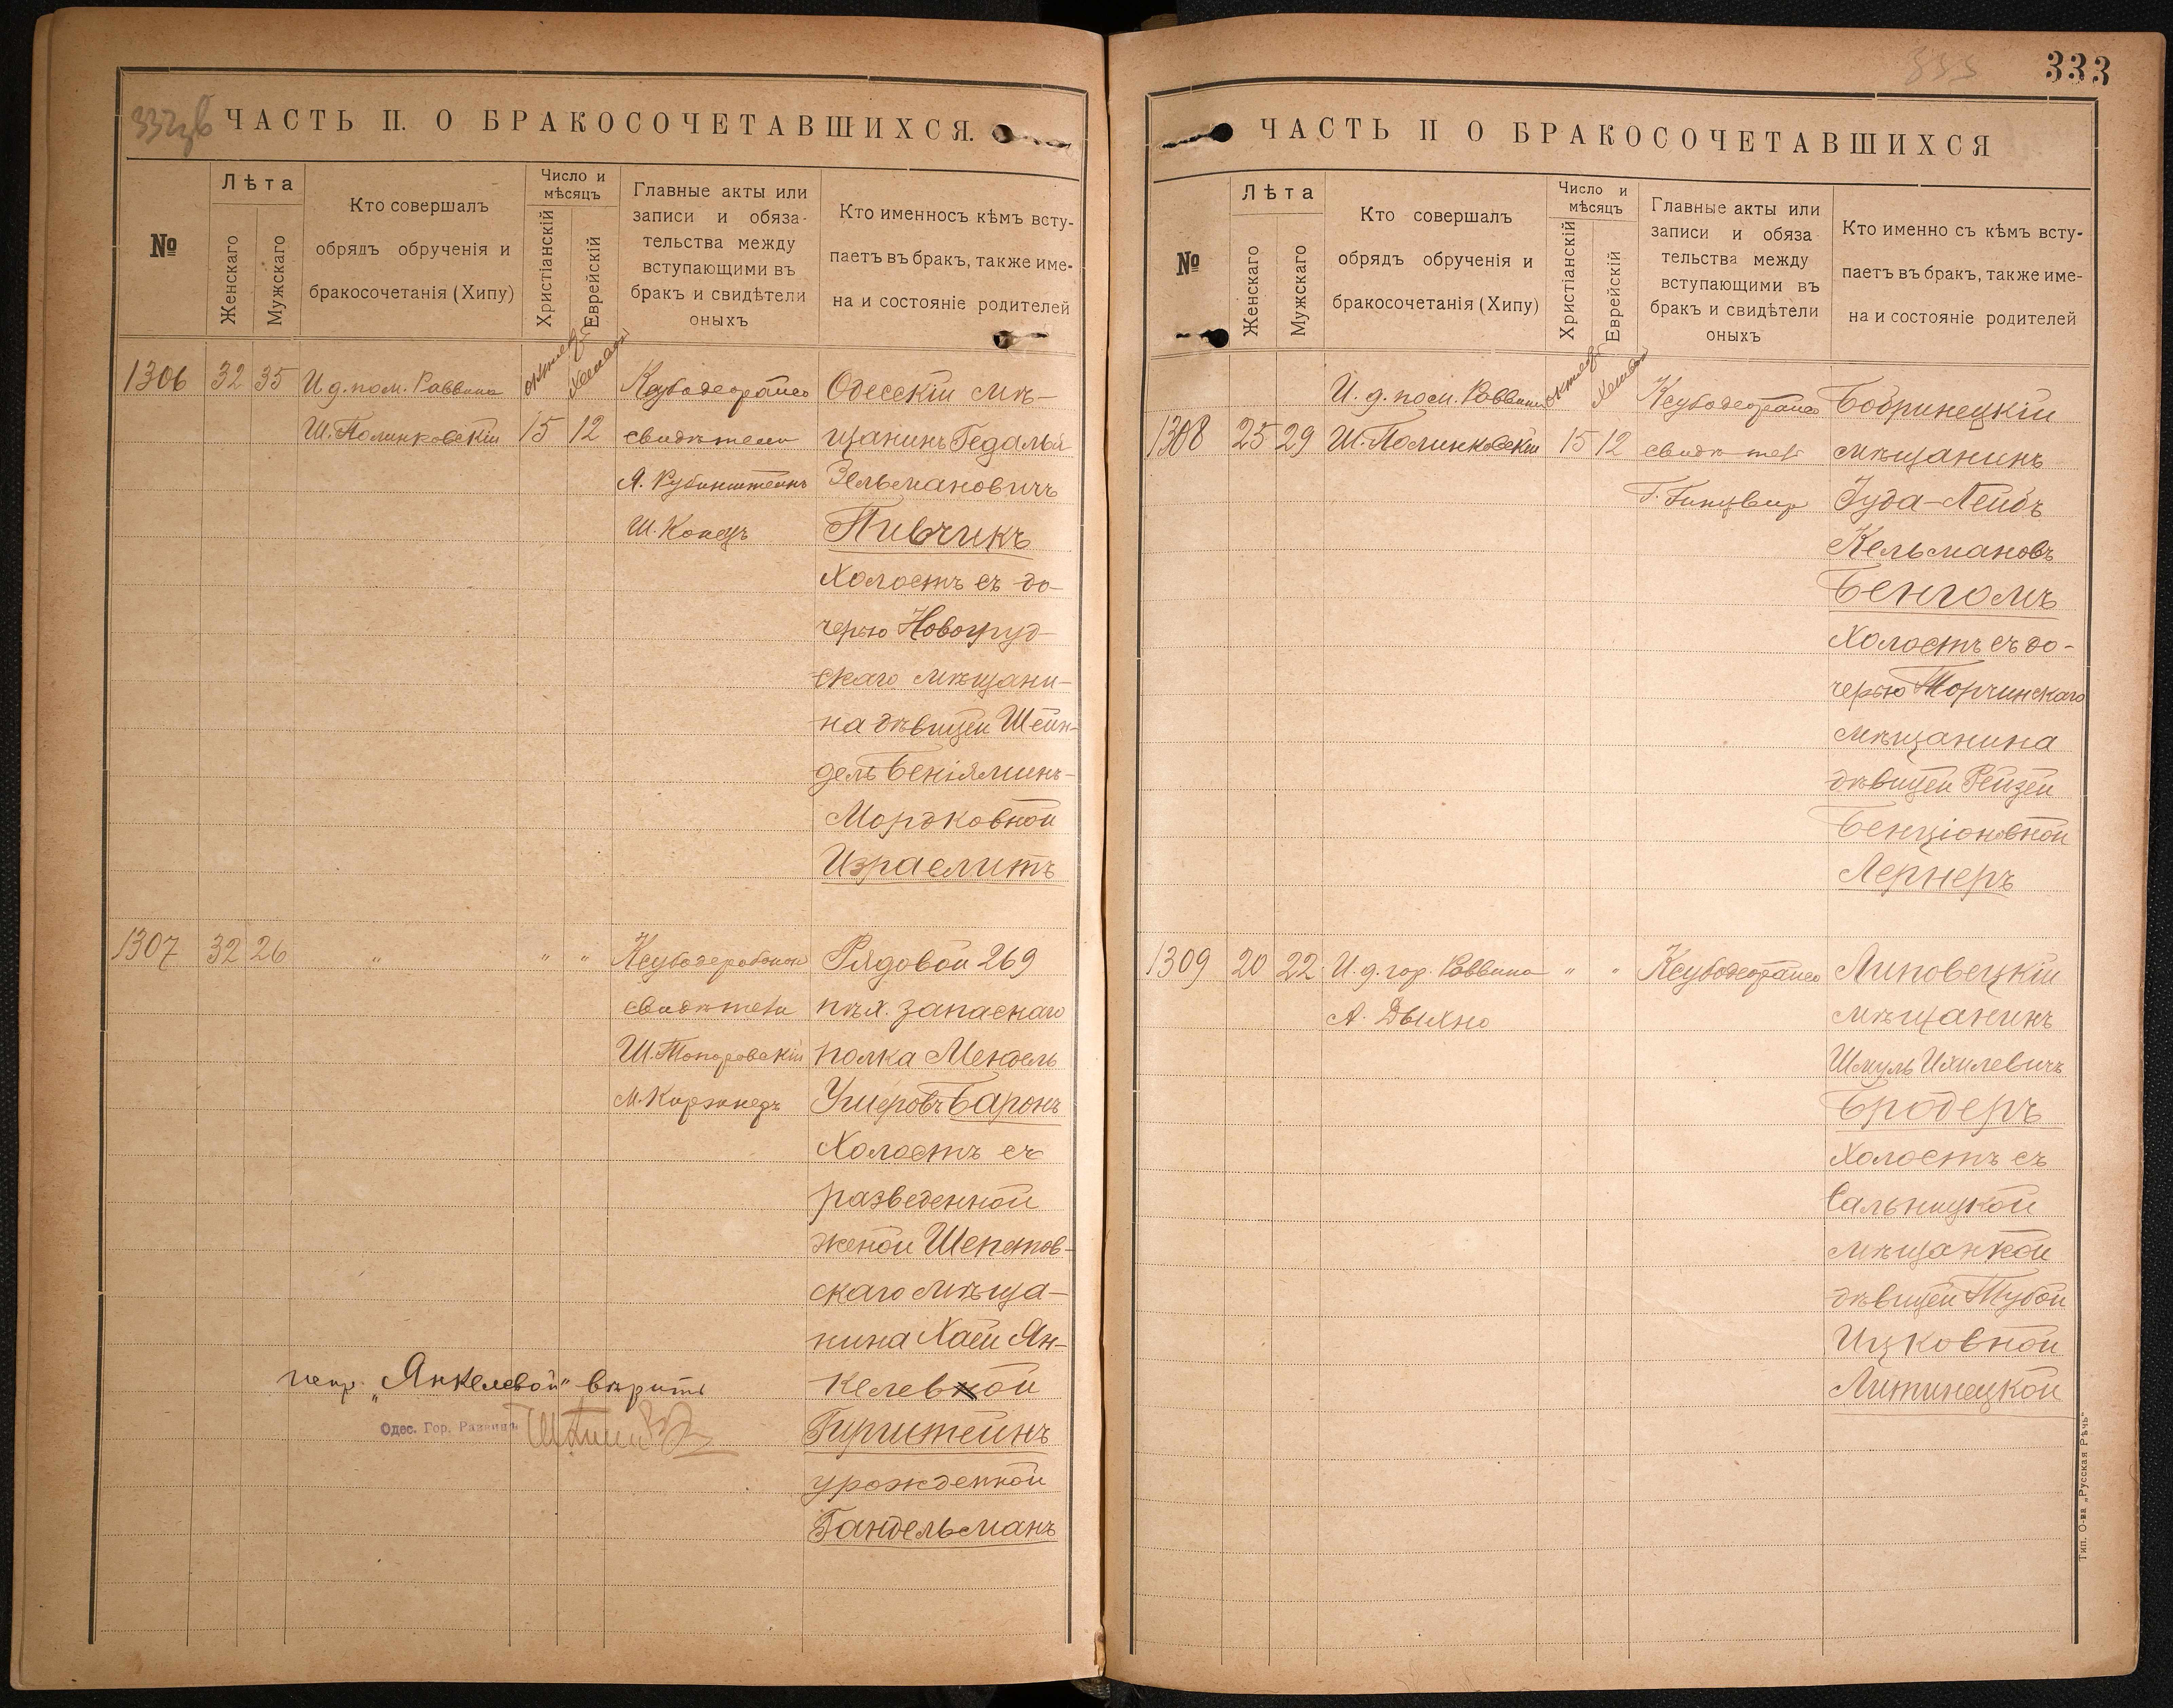 ЧАСТЬ II. О БРАКОСОЧЕТАВШИХСЯ.
№
Лѣта
Женскаго
Мужскаго
Кто совершалъ
обрядъ обрученія и
бракосочетанія (Хипу)
Число и
мѣсяцъ
Христіанскій
Еврейскій
Главные акты или
записи и обяза-
тельства между
вступающими въ
бракъ и свидѣтели
оныхъ
Кто именносъ кѣмъ всту-
паетъ въ бракъ, также име-
на и состояніе родителей
1306 32 35
И. д. пом. Раввина
Ш. Полинковскій
15 12
свидѣтели
А. Рубинштейнъ
Ш. Конецъ
Одесскій мѣ-
щанинъ Гедалья
Зельмановичъ
Пивчикъ
Холостъ съ до-
черью Новогруд-
скаго мѣщани-
на дѣвицей Шейн-
дель Беніяминъ-
Мордковной
Израелитъ
1307 32 26
" " "
свидѣтели
Ш. Топоровскій
Рядовой 269
пѣх. запаснаго
полка Мендель
Ушеровъ Баронъ
Холостъ съ
разведенной
женой Шепетов-
скаго мѣща-
нина Хаей Ян-
келевной
Гирштейнъ
урожденной
Гандельманъ
испр. „Янкелевой" вѣрить
Одес. Гор. Раввинъ
333
ЧАСТЬ II О БРАКОСОЧЕТАВШИХСЯ
№
Лѣта
Женскаго
Мужскаго
Кто совершалъ
обрядъ обрученія и
бракосочетанія (Хипу)
Число и
мѣсяцъ
Христіанскій
Еврейскій
Главные акты или
записи и обяза
тельства между
вступающими въ
бракъ и свидѣтели
оныхъ
Кто именно съ кѣмъ всту-
паетъ въ бракъ, также име-
на и состояніе родителей
1308 25 29
И. д. пом. Раввина
Ш. Полинковскій
15 12
Бобринецкій
мѣщанинъ
Іуда-Лейбъ
Кельмановъ
Бенгомъ
Холостъ съ до-
черью Торчинскаго
мѣщанина
дѣвицей Рейзей
Бенціоновной
Лернеръ
1309 20 22
И. д. гор. Раввина
А. Двихно
" "
Липовецкій
мѣщанинъ
Шмуль Ихилевичъ
Бродеръ
Холостъ съ
Сальницкой
мѣщанкой
дѣвицей Тубой
Ицковной
Литинецкой
Тип. О-ва „Русская Рѣчь"